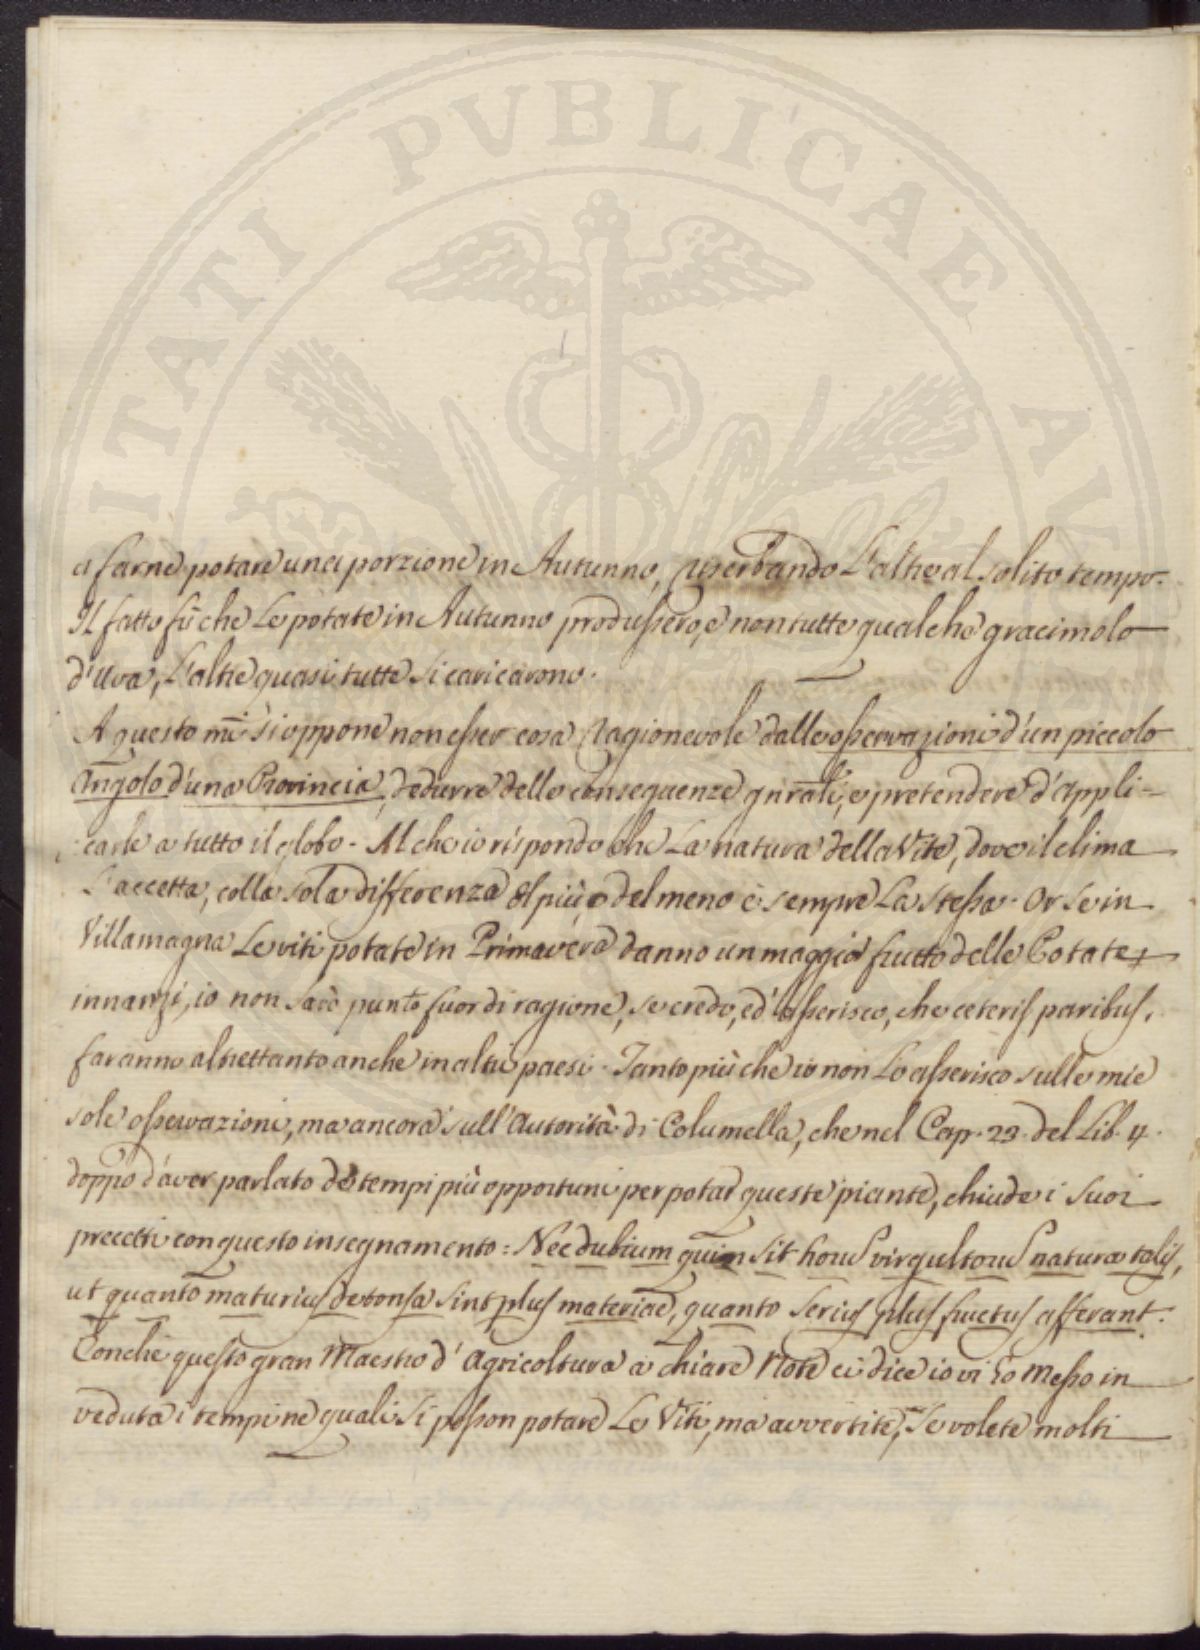 PVBLICAE
ITATI
AVG
a farne potare una porzione in Autunno, riserbando L'altre al solito tempo.
Il fatto fù che Le potate in Autunno produssero, e non tutte qualche gracimolo
d'Uva, L'altre quasi tutte si caricarono.
A questo mi si oppone non esser cosa ragionevole dalle osservazioni d'un piccolo
Angolo d'una Provincia, dedurre delle conseguenze gnrāli, e pretendere d'appli=
=carle a tutto il globo. Al che io rispondo che La natura della Vite, dove il clima
L'accetta, colla sola differenza del più, o del meno è sempre La stessa. Or se in
Villamagna Le viti potate in Primavera danno un maggior frutto delle Potate
innanzi, io non sarò punto fuor di ragione, se credo, ed asserisco, che ceteris paribus,
faranno altrettanto anche in altri paesi. Tanto più che io non Lo asserisco sulle mie
sole osservazioni, ma ancora sull'Autorità di Columella, che nel Cap. 23. del Lib. 4.
doppo d'aver parlato de tempi più opportuni per potar queste piante, chiude i suoi
precetti con questo insegnamento: Nec dubium quin sit horū virgultorū naturae talis,
ut quantō maturius detonsa sint plus materiae, quanto serius plus fructus afferant.
Conchè questo gran Maestro d'Agricoltura a chiare Note ci dice io vi ho messo in
veduta i tempi ne quali si posson potare Le Viti, ma avvertite, se volete molti